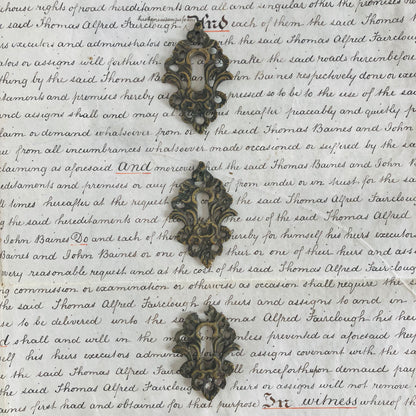 house rights of road hereditaments and all and singular other the promises
said Thomas Alfred Fairclough And each of them the said Thomas
heirs executors and administrators coven the said Thomas Alfred Fair
or assigns will forthwith make the said roads hereinbefore
thing by the said Thomas Baines respectively done or ex
taments and premises hereby pressed so to be to the use of the said
and assigns shall and may hereafter peaceably and quietly
claim or demand whatsoever from or by the said Thomas Baines and John
from all incumbrances whatever made occasioned or suffered by the sa
claiming as aforesaid And moreover that the said Thomas Baines and John
reditaments and premises or any from or under or in trust for the said
times hereafter at the request cost of the said Thomas Alfred Fairclou
the said hereditaments and the use of the said Thomas Alfred
John Baines Do and each of them hereby for himself his heirs executors
Baines and John Baines or one of their or one of their heirs and asse
very reasonable request and at the cost of the said Thomas Alfred Fair
commission or examination or otherwise as occasion shall require the
said Thomas Alfred Fairclough his heirs and assigns to and in
to be delivered unto the said Thomas Alfred Fairclough his hei
shall and will in the unless prevented as aforesaid keep
his heirs executors admin and assigns covenant with the said
Thomas Alfred Fairclough hence forth upon demand pay
the said Thomas Alfred Fairclough heirs or assigns will not remove
first had and obtained for that purpose In witness whereof the said